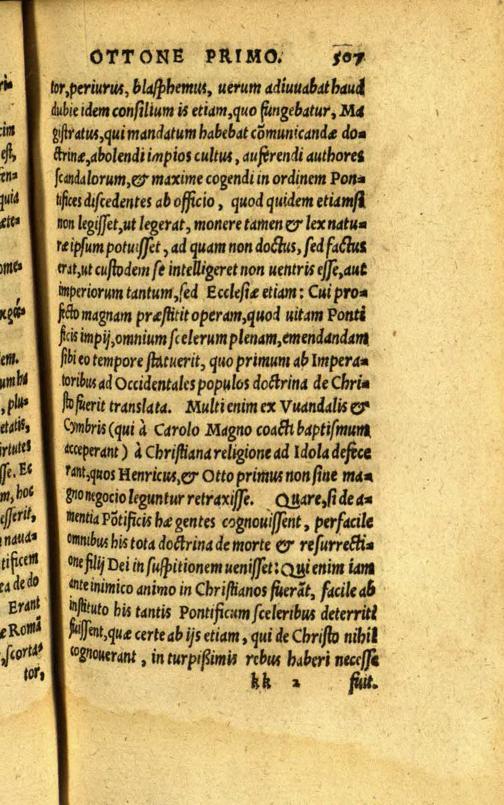 OTTONE PRIMO. 507
tor, periurus, blasphemus, uerum adiuuabat haud
dubie idem consilium is etiam, quo fungebatur, Ma
gistratus, qui mandatum habebat cõmunicandæ do-
ctrinæ, abolendi impios cultus, auferendi authores
scandalorum, & maxime cogendi in ordinem Pon-
tifices discedentes ab officio, quod quidem etiamsi
non legisset, ut legerat, monere tamen & lex natu-
ræ ipsum potuisset, ad quam non doctus, sed factus
erat, ut custodem se intelligeret non uentris esse, aut
imperiorum tantum, sed Ecclesiæ etiam: Cui pro-
fecto magnam præstitit operam, quod uitam Ponti
ficis impij, omnium scelerum plenam, emendandam
sibi eo tempore statuerit, quo primum ab Impera-
toribus ad Occidentales populos doctrina de Chri-
sto fuerit translata. Multi enim ex Vuandalis &
Cymbris (qui à Carolo Magno coacti baptismum
acceperant) à Christiana religione ad Idola defece
rant, quos Henricus, & Otto primus non sine ma-
gno negocio leguntur retraxisse. Quare, si de a-
mentia Põtificis hæ gentes cognouissent, perfacile
omnibus his tota doctrina de morte & resurrecti-
one filij Dei in suspitionem uenisset: Qui enim iam
ante inimico animo in Christianos fuerãt, facile ab
instituto his tantis Pontificum sceleribus deterriti
fuissent, quæ certe ab ijs etiam, qui de Christo nihil
cognouerant, in turpißimis rebus haberi necesse
kk 2 fuit.
cim
est,
quia
dem.
, plus
etatis,
irtutes
sse. Ec
m, hoc
esserit,
tificem
ea de do
Erant
æ Romã
, scorta-
tor,